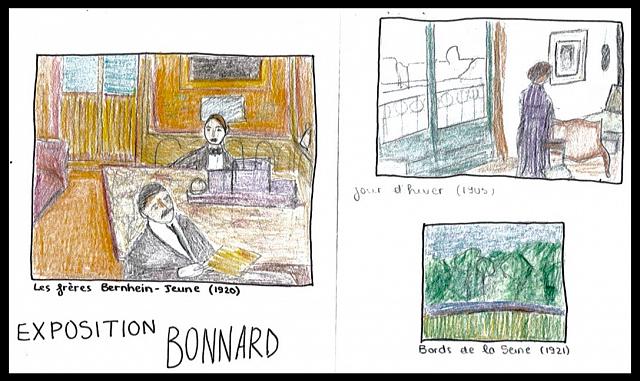 Les frères Bernhein-Jeune (1920)
EXPOSITION BONNARD
jour d'hiver (1905)
Bords de la Seine (1921)